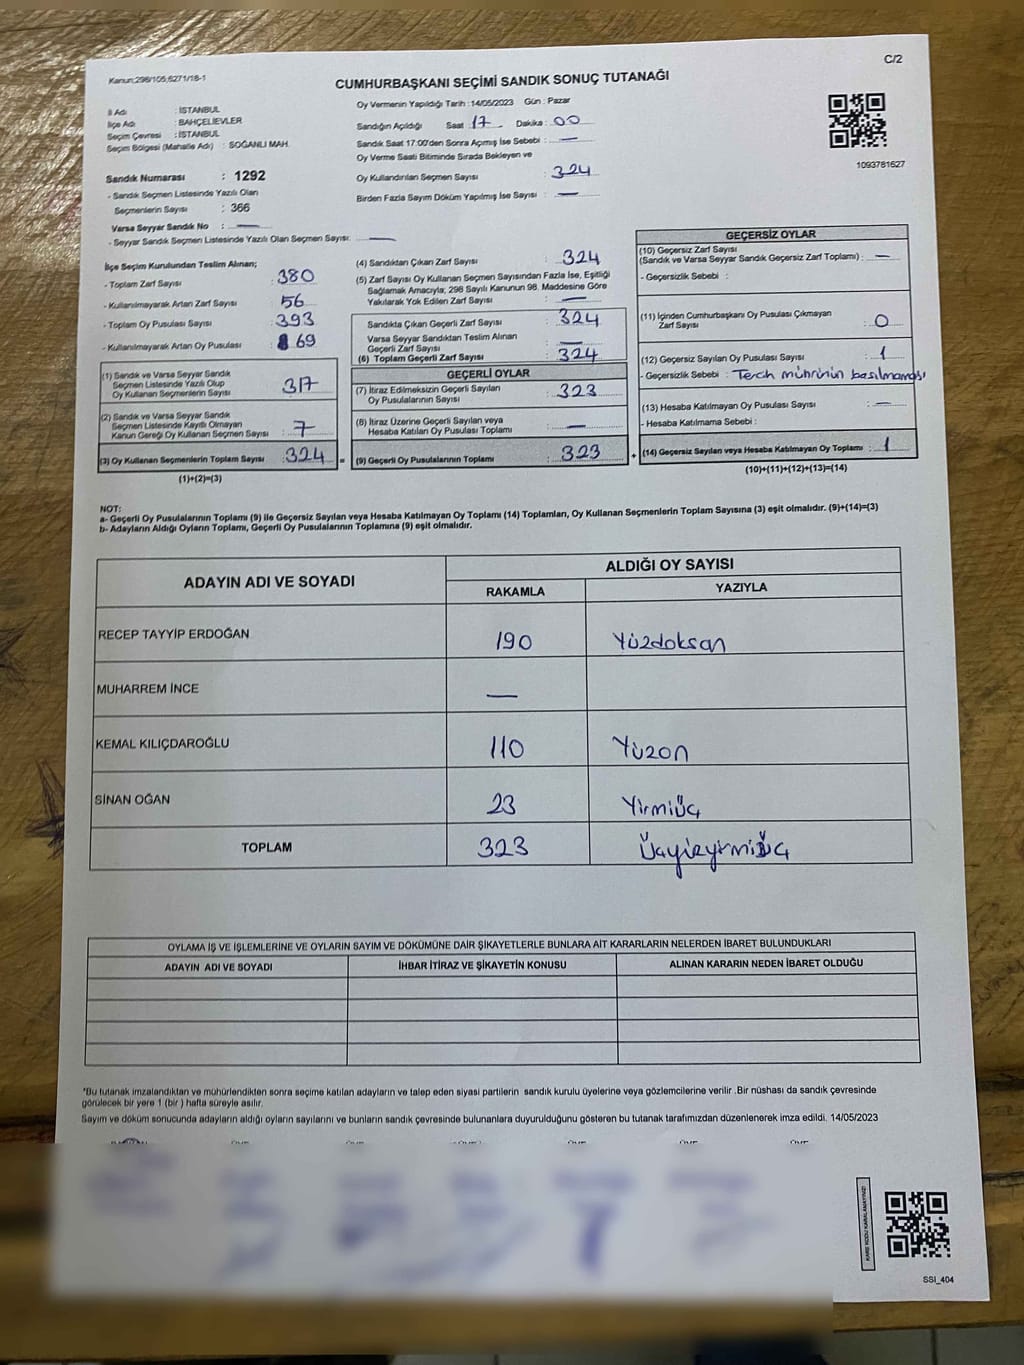 Kanun;298/105;6271/18-1
C/2
CUMHURBAŞKANI SEÇİMİ SANDIK SONUÇ TUTANAĞI
İl Adı : İSTANBUL
İlçe Adı : BAHÇELİEVLER
Seçim Çevresi : İSTANBUL
Seçim Bölgesi (Mahalle Adı) : SOĞANLI MAH.
Sandık Numarası : 1292
- Sandık Seçmen Listesinde Yazılı Olan
Seçmenlerin Sayısı : 366
Varsa Seyyar Sandık No : —
- Seyyar Sandık Seçmen Listesinde Yazılı Olan Seçmen Sayısı: —
Oy Vermenin Yapıldığı Tarih : 14/05/2023 Gün : Pazar
Sandığın Açıldığı Saat : 17 Dakika : 00
Sandık Saat 17:00'den Sonra Açımış İse Sebebi : —
Oy Verme Saati Bitiminde Sırada Bekleyen ve
Oy Kullandırılan Seçmen Sayısı : 324
Birden Fazla Sayım Döküm Yapılmış İse Sayısı : —
1093781627
İlçe Seçim Kurulundan Teslim Alınan;
- Toplam Zarf Sayısı : 380
- Kullanılmayarak Artan Zarf Sayısı : 56
- Toplam Oy Pusulası Sayısı : 393
- Kullanılmayarak Artan Oy Pusulası : 69
(1) Sandık ve Varsa Seyyar Sandık
Seçmen Listesinde Yazılı Olup
Oy Kullanan Seçmenlerin Sayısı : 317
(2) Sandık ve Varsa Seyyar Sandık
Seçmen Listesinde Kayıtlı Olmayan
Kanun Gereği Oy Kullanan Seçmen Sayısı : 7
(3) Oy Kullanan Seçmenlerin Toplam Sayısı : 324 =
(1)+(2)=(3)
(4) Sandıktan Çıkan Zarf Sayısı : 324
(5) Zarf Sayısı Oy Kullanan Seçmen Sayısından Fazla İse, Eşitliği
Sağlamak Amacıyla; 298 Sayılı Kanunun 98. Maddesine Göre
Yakılarak Yok Edilen Zarf Sayısı : —
Sandıkta Çıkan Geçerli Zarf Sayısı : 324
Varsa Seyyar Sandıktan Teslim Alınan
Geçerli Zarf Sayısı : —
(6) Toplam Geçerli Zarf Sayısı : 324
GEÇERLİ OYLAR
(7) İtiraz Edilmeksizin Geçerli Sayılan
Oy Pusulalarının Sayısı : 323
(8) İtiraz Üzerine Geçerli Sayılan veya
Hesaba Katılan Oy Pusulası Toplamı : —
(9) Geçerli Oy Pusulalarının Toplamı : 323 +
GEÇERSİZ OYLAR
(10) Geçersiz Zarf Sayısı
(Sandık ve Varsa Seyyar Sandık Geçersiz Zarf Toplamı) : —
- Geçersizlik Sebebi :
(11) İçinden Cumhurbaşkanı Oy Pusulası Çıkmayan
Zarf Sayısı : 0
(12) Geçersiz Sayılan Oy Pusulası Sayısı : 1
- Geçersizlik Sebebi : Tercih mührünün basılmaması
(13) Hesaba Katılmayan Oy Pusulası Sayısı : —
- Hesaba Katılmama Sebebi :
(14) Geçersiz Sayılan veya Hesaba Katılmayan Oy Toplamı : 1
(10)+(11)+(12)+(13)=(14)
NOT:
a- Geçerli Oy Pusulalarının Toplamı (9) ile Geçersiz Sayılan veya Hesaba Katılmayan Oy Toplamı (14) Toplamları, Oy Kullanan Seçmenlerin Toplam Sayısına (3) eşit olmalıdır. (9)+(14)=(3)
b- Adayların Aldığı Oyların Toplamı, Geçerli Oy Pusulalarının Toplamına (9) eşit olmalıdır.
ADAYIN ADI VE SOYADI
ALDIĞI OY SAYISI
RAKAMLA YAZIYLA
RECEP TAYYİP ERDOĞAN 190 Yüzdoksan
MUHARREM İNCE —
KEMAL KILIÇDAROĞLU 110 Yüzon
SİNAN OĞAN 23 Yirmiüç
TOPLAM 323 Üçyüzyirmiüç
OYLAMA İŞ VE İŞLEMLERİNE VE OYLARIN SAYIM VE DÖKÜMÜNE DAİR ŞİKAYETLERLE BUNLARA AİT KARARLARIN NELERDEN İBARET BULUNDUKLARI
ADAYIN ADI VE SOYADI İHBAR İTİRAZ VE ŞİKAYETİN KONUSU ALINAN KARARIN NEDEN İBARET OLDUĞU
*Bu tutanak imzalandıktan ve mühürlendikten sonra seçime katılan adayların ve talep eden siyasi partilerin sandık kurulu üyelerine veya gözlemcilerine verilir .Bir nüshası da sandık çevresinde
görülecek bir yere 1 (bir ) hafta süreyle asılır.
Sayım ve döküm sonucunda adayların aldığı oyların sayılarını ve bunların sandık çevresinde bulunanlara duyurulduğunu gösteren bu tutanak tarafımızdan düzenlenerek imza edildi. 14/05/2023
KARE KODU KARALAMAYINIZ!
SSI_404